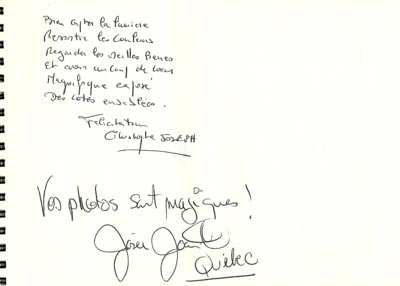 Bien capter la lumière
Ressortir les couleurs
Regarder les vieilles pierres
Et avoir un coup de coeur
Magnifique exposé
Des cotés ensablées.
Félicitation
Christophe JOSEPH
Vos photos sont magiques!
Josée
Québec